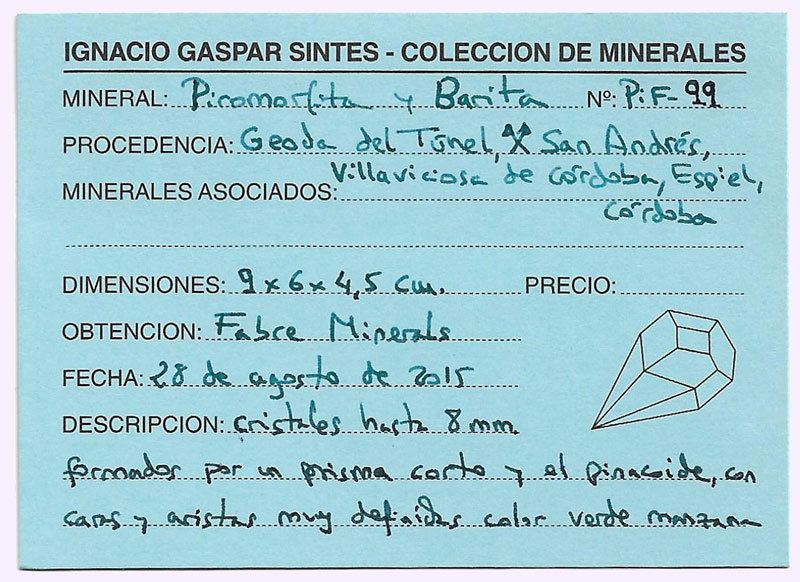 IGNACIO GASPAR SINTES - COLECCION DE MINERALES
MINERAL: Piromorfita y Barita Nº: PiF-99
PROCEDENCIA: Geoda del Túnel, ⚒ San Andrés,
Villaviciosa de Córdoba, Espiel,
MINERALES ASOCIADOS:
Córdoba
DIMENSIONES: 9 x 6 x 4,5 cm. PRECIO:
OBTENCION: Fabre Minerals
FECHA: 28 de agosto de 2015
DESCRIPCION: cristales hasta 8 mm.
formados por un prisma corto y el pinacoide, con
caras y aristas muy definidas color verde manzana